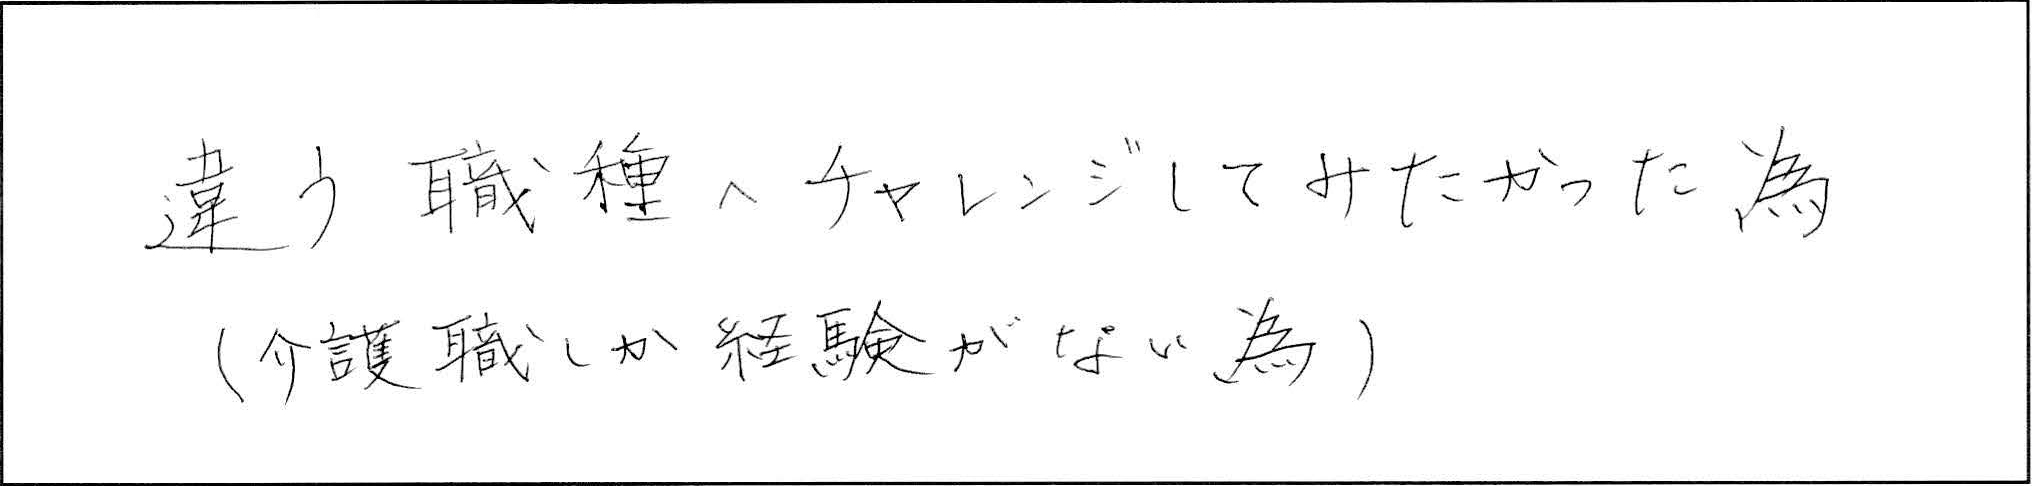 違う職種へチャレンジしてみたかった為
(介護職しか経験がない為)